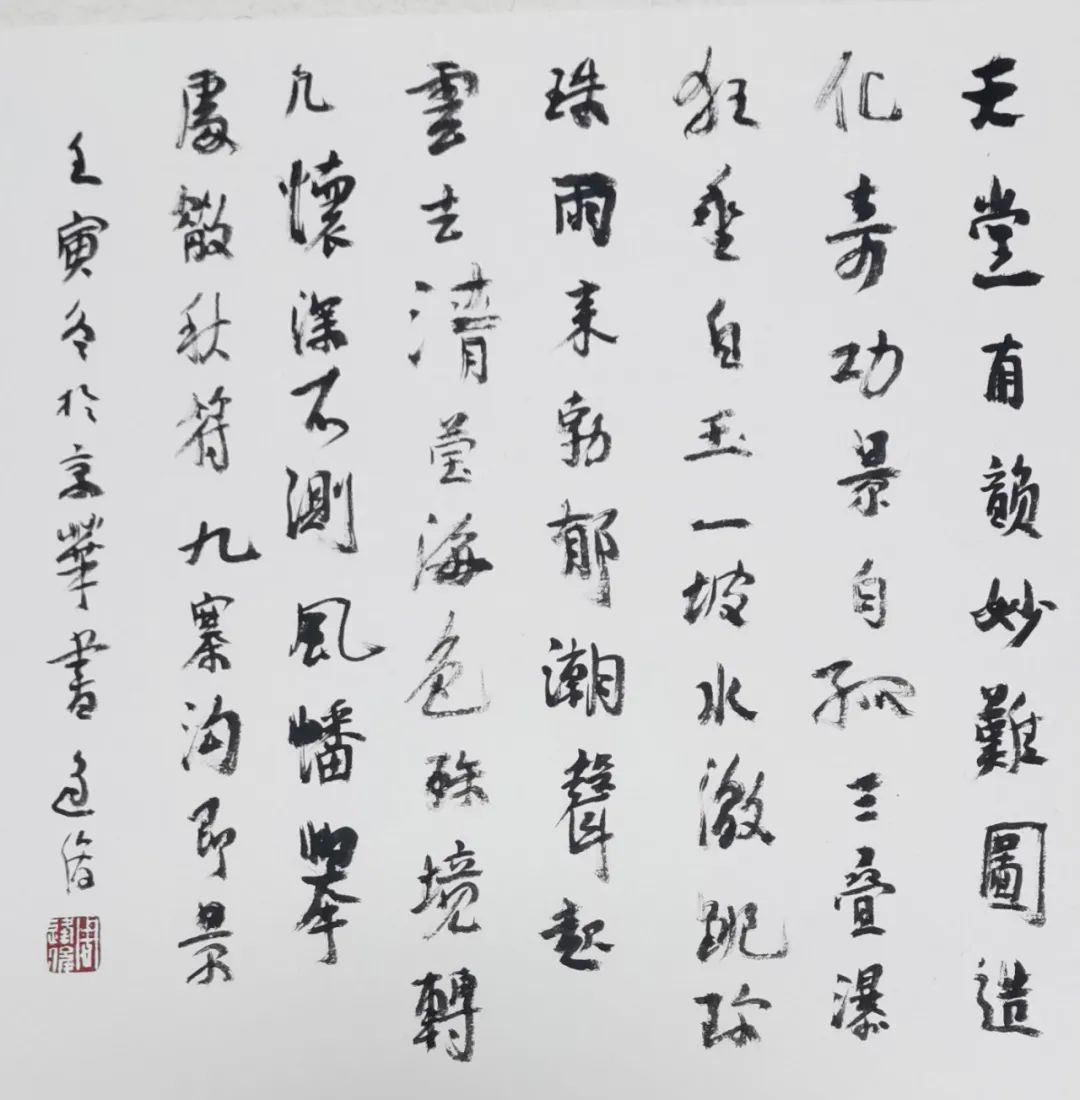 天堂有韻妙難圖造
化奇功景自孤三疊瀑
狂垂白玉一坡水激跳珎
珠雨来勃郁潮聲起
雲去清莹海色殊境轉
凡懷深不測風幡舉
處散秋符九寨沟即景
壬寅冬於京華書